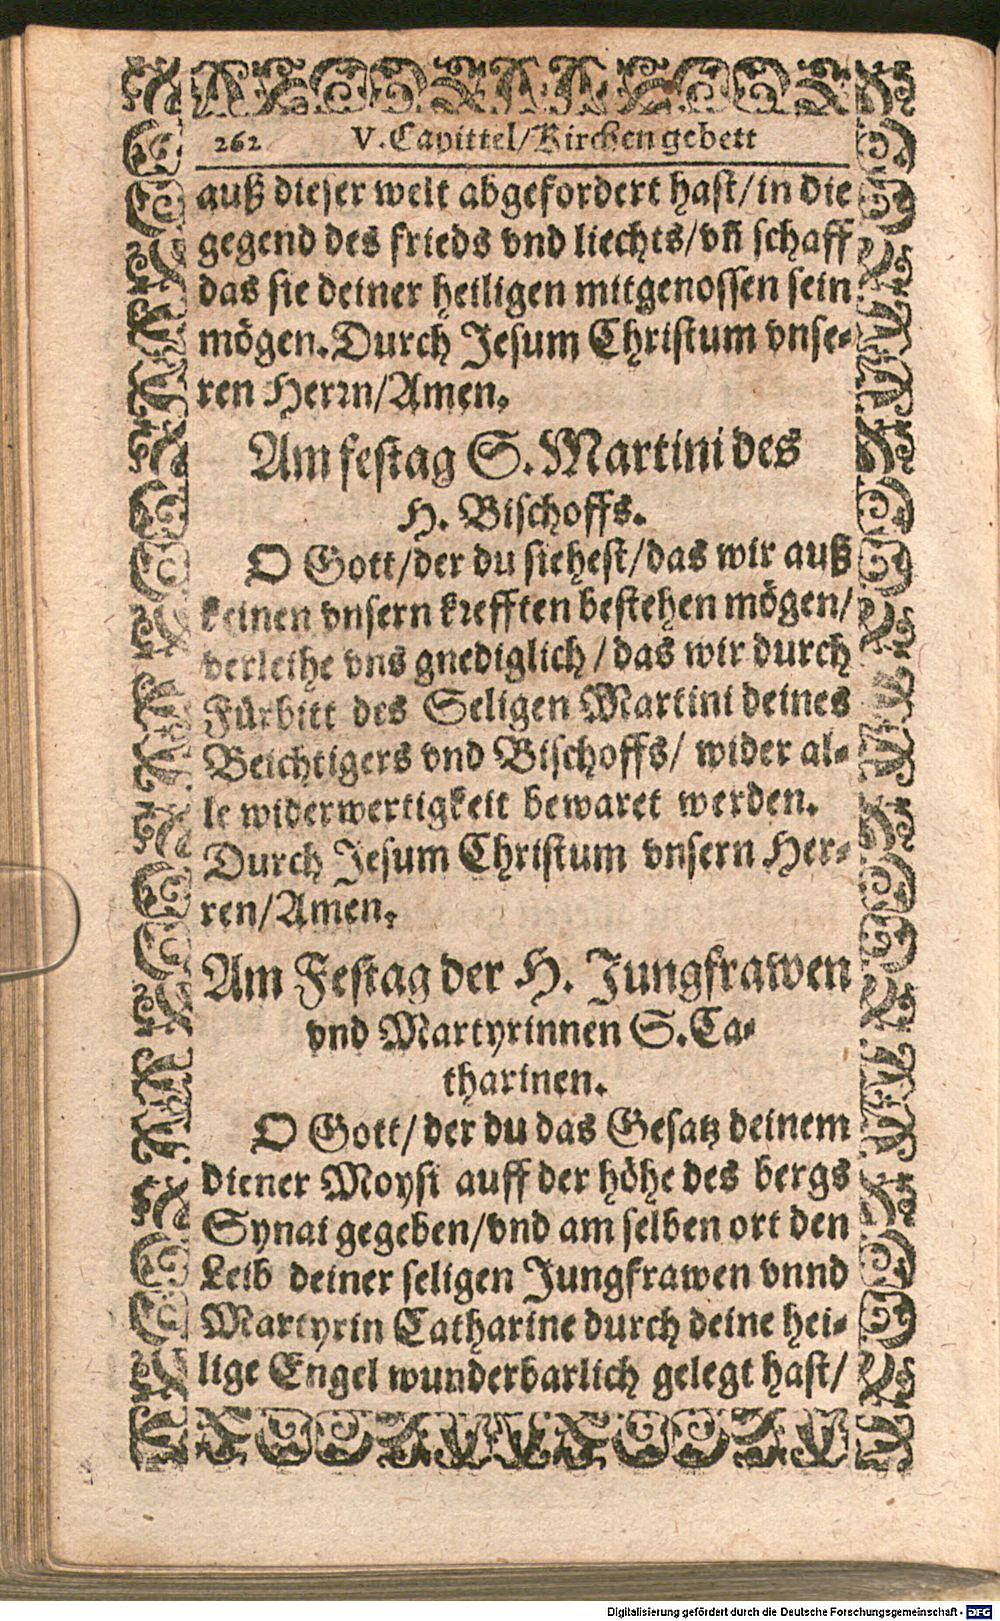 262 V. Capittel/Kirchengebett
auß dieser welt abgefordert hast/in die
gegend des frieds vnd liechts/vñ schaff
das sie deiner heiligen mitgenossen sein
mögen. Durch Jesum Christum vnse-
ren Herrn/Amen.
Am festag S. Martini des
H. Bischoffs.
O Gott/der du siehest/das wir auß
keinen vnsern krefften bestehen mögen/
verleihe vns gnediglich/das wir durch
Fürbitt des Seligen Martini deines
Beichtigers vnd Bischoffs/ wider al-
le widerwertigkeit bewaret werden.
Durch Jesum Christum vnsern Her-
ren/Amen.
Am Festag der H. Jungfrawen
vnd Martyrinnen S. Ca-
tharinen.
O Gott/der du das Gesatz deinem
diener Moysi auff der höhe des bergs
Synai gegeben/vnd am selben ort den
Leib deiner seligen Jungfrawen vnnd
Martyrin Catharine durch deine hei-
lige Engel wunderbarlich gelegt hast/
Digitalisierung gefördert durch die Deutsche Forschungsgemeinschaft - DFG